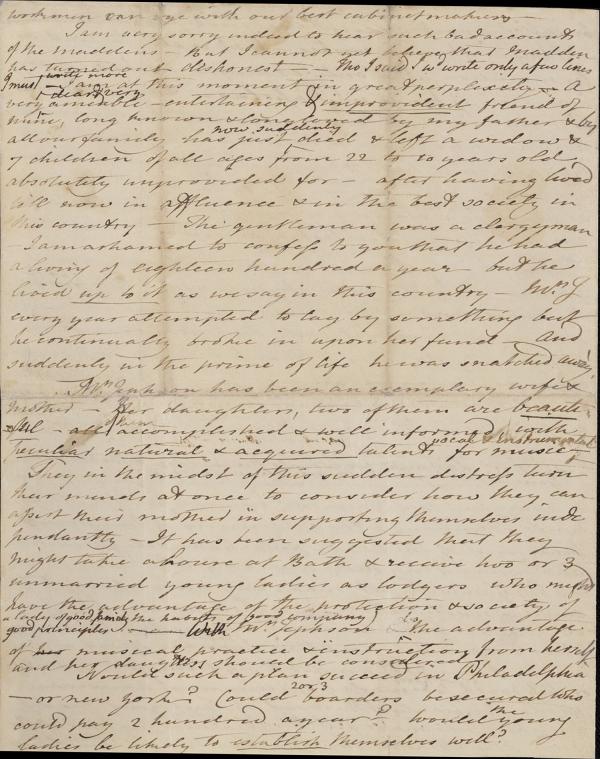 workmen can vye with our best cabinet makers –
I am very sorry indeed to hear such bad accounts
of the Maddens – But I cannot yet believe that Madden
has turned out dishonest – Tho I said I wd write only a few lines
I must write more
– I am at this moment in great perplexity – A
dear & very
very amiable – entertaining & improvident friend of
mine, long known & long loved by my father & by
now suddenly
all our family has just died & left a widow &
7 children of all ages from 22 to 10 years old
absolutely unprovided for – after having lived
till now in affluence & in the best society in
this country – The gentleman was a clergyman
– I am ashamed to confess to you that he had
a living of eighteen hundred a year – but he
lived up to it as we say in this country – Mrs J
every year attempted to lay by something but
he continually broke in upon her fund – And
suddenly in the prime of life he was snatched away.
Mrs Jephson has been an exemplary wife &
mother – Her daughters, two of them are beauti-
-ful – all of them accomplished & well informed with
vocal & Instrumental
peculiar natural & acquired talents for music –
They in the midst of this sudden distress turn
their minds at once to consider how they can
assist their mother in supporting themselves inde
pendantly – It has been suggested that they
might take a house at Bath & receive two or 3
unmarried young ladies as lodgers who might
have the advantage of the protection & society of
a lady of good family the habits of good company
good principles – With Mrs Jephson & the advantage
of musical practice & instruction from herself
and her daughters should be considered
Would such a plan succeed in Philadelphia
– or New York? Could 2 or 3 boarders be secured who
could pay 2 hundred a year? Would the young
ladies be likely to establish themselves well?